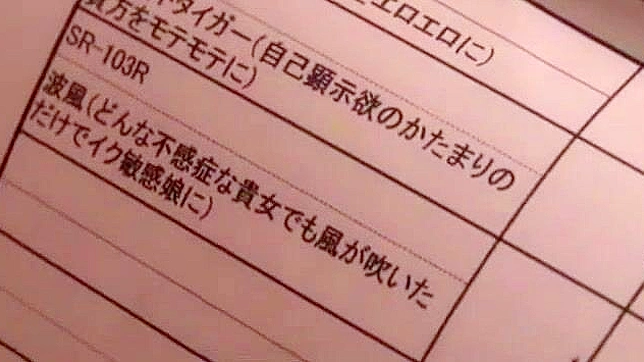 エロエロに)
タイガー(自己顕示欲のかたまりの
貴方をモテモテに)
SR-103R
波風(どんな不感症な貴女でも風が吹いた
だけでイク敏感娘に)